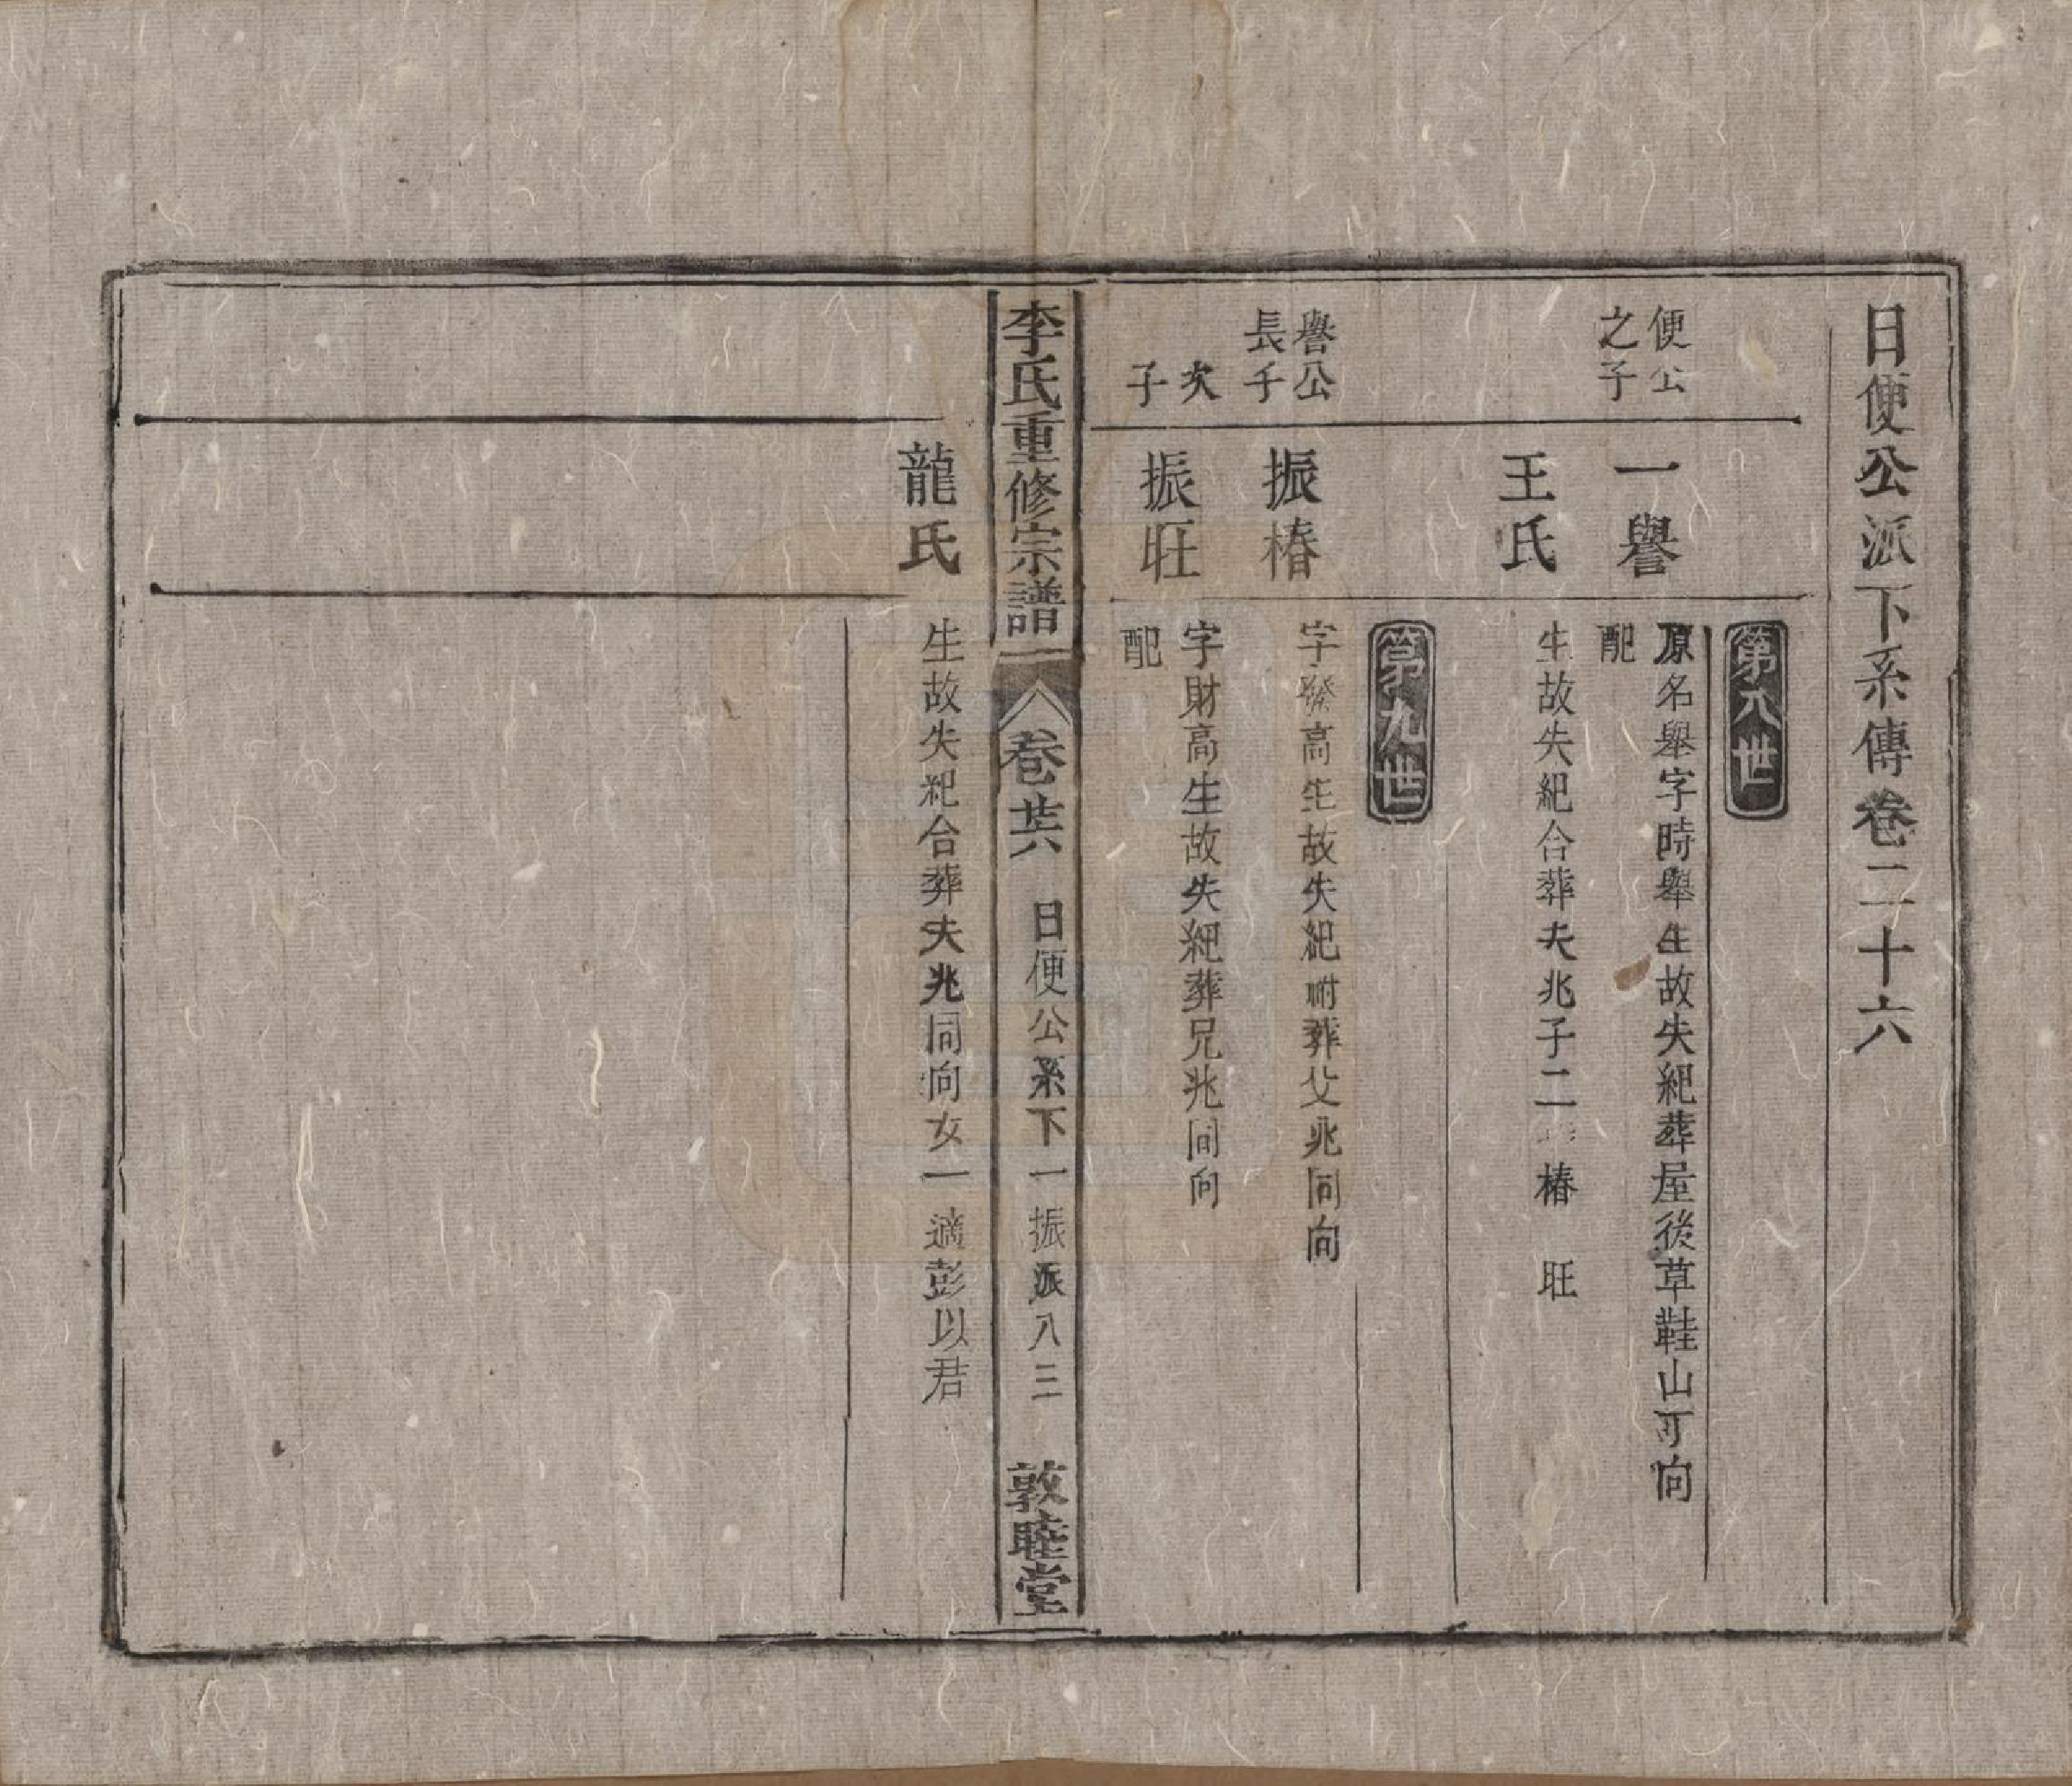 日便公派下系傳卷二十六
第八世
便公
之子
一譽
原名舉字時舉生故失紀葬屋後草鞋山丁向
配
王氏
生故失紀合葬夫兆子二 椿 旺
第九世
譽公
長子
振椿
字發高生故失紀附葬父兆同向
次
子
振旺
字財高生故失紀葬兄兆同向
配
李氏重修宗譜
卷廿六
日便公系下一振派八三
敦睦堂
龍氏
生故失紀合葬夫兆同向女一適彭以君